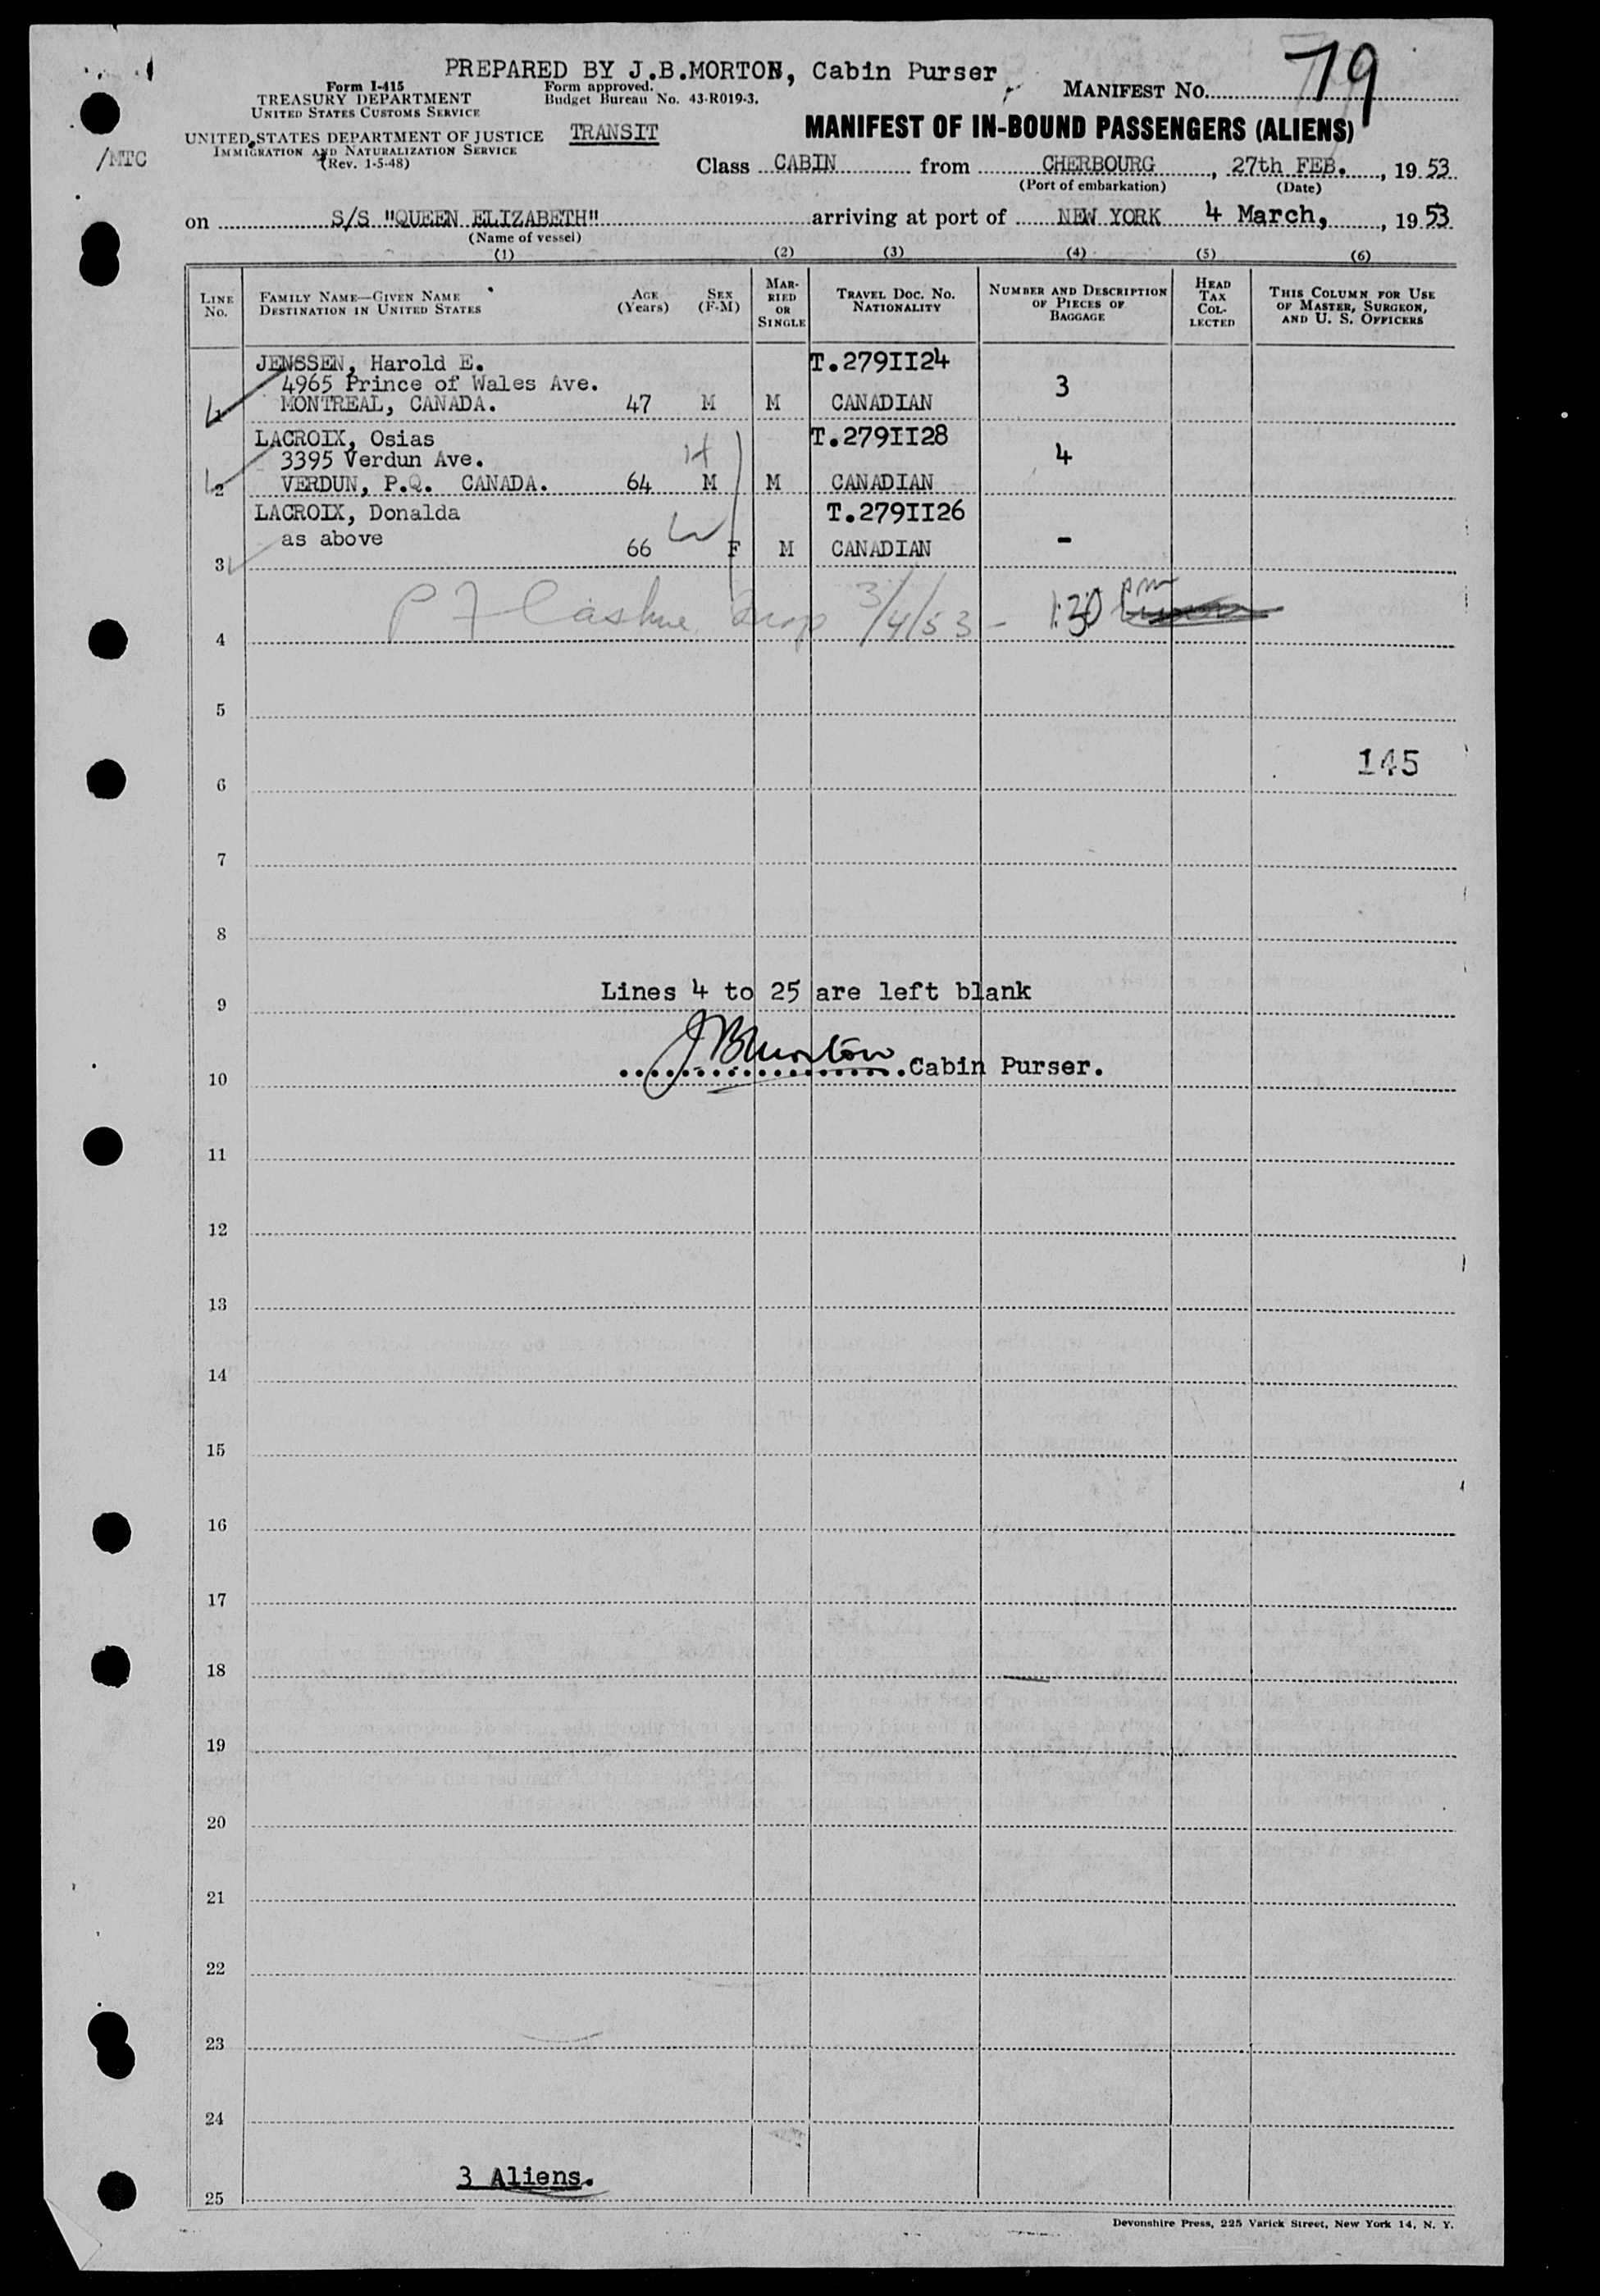 PREPARED BY J.B.MORTON, Cabin Purser
Form I-415
TREASURY DEPARTMENT
UNITED STATES CUSTOMS SERVICE
Form approved.
Budget Bureau No. 43-R019-3.
MANIFEST NO. 79
UNITED STATES DEPARTMENT OF JUSTICE
IMMIGRATION AND NATURALIZATION SERVICE
(Rev. 1-5-48)
TRANSIT
/MTC
MANIFEST OF IN-BOUND PASSENGERS (ALIENS)
Class CABIN from CHERBOURG, 27th FEB., 1953
(Port of embarkation) (Date)
on S/S "QUEEN ELIZABETH" arriving at port of NEW YORK 4 March, , 1953
(Name of vessel)
(1) (2) (3) (4) (5) (6)
LINE NO.
FAMILY NAME—GIVEN NAME
DESTINATION IN UNITED STATES
AGE (Years)
SEX (F-M)
MARRIED OR SINGLE
TRAVEL DOC. NO.
NATIONALITY
NUMBER AND DESCRIPTION OF PIECES OF BAGGAGE
HEAD TAX COLLECTED
THIS COLUMN FOR USE OF MASTER, SURGEON, AND U. S. OFFICERS
JENSSEN, Harold E. T.279II24
4965 Prince of Wales Ave. 3
MONTREAL, CANADA. 47 M M CANADIAN
LACROIX, Osias T.279II28
3395 Verdun Ave. H 4
2 VERDUN, P.Q. CANADA. 64 M M CANADIAN
LACROIX, Donalda T.279II26
as above W -
66 F M CANADIAN
3
P F Insp 3/4/53 - 1:30 pm
4
5
145
6
7
8
Lines 4 to 25 are left blank
9
JBMorton
10 Cabin Purser.
11
12
13
14
15
16
17
18
19
20
21
22
23
24
3 Aliens.
25
Devonshire Press, 225 Varick Street, New York 14, N. Y.